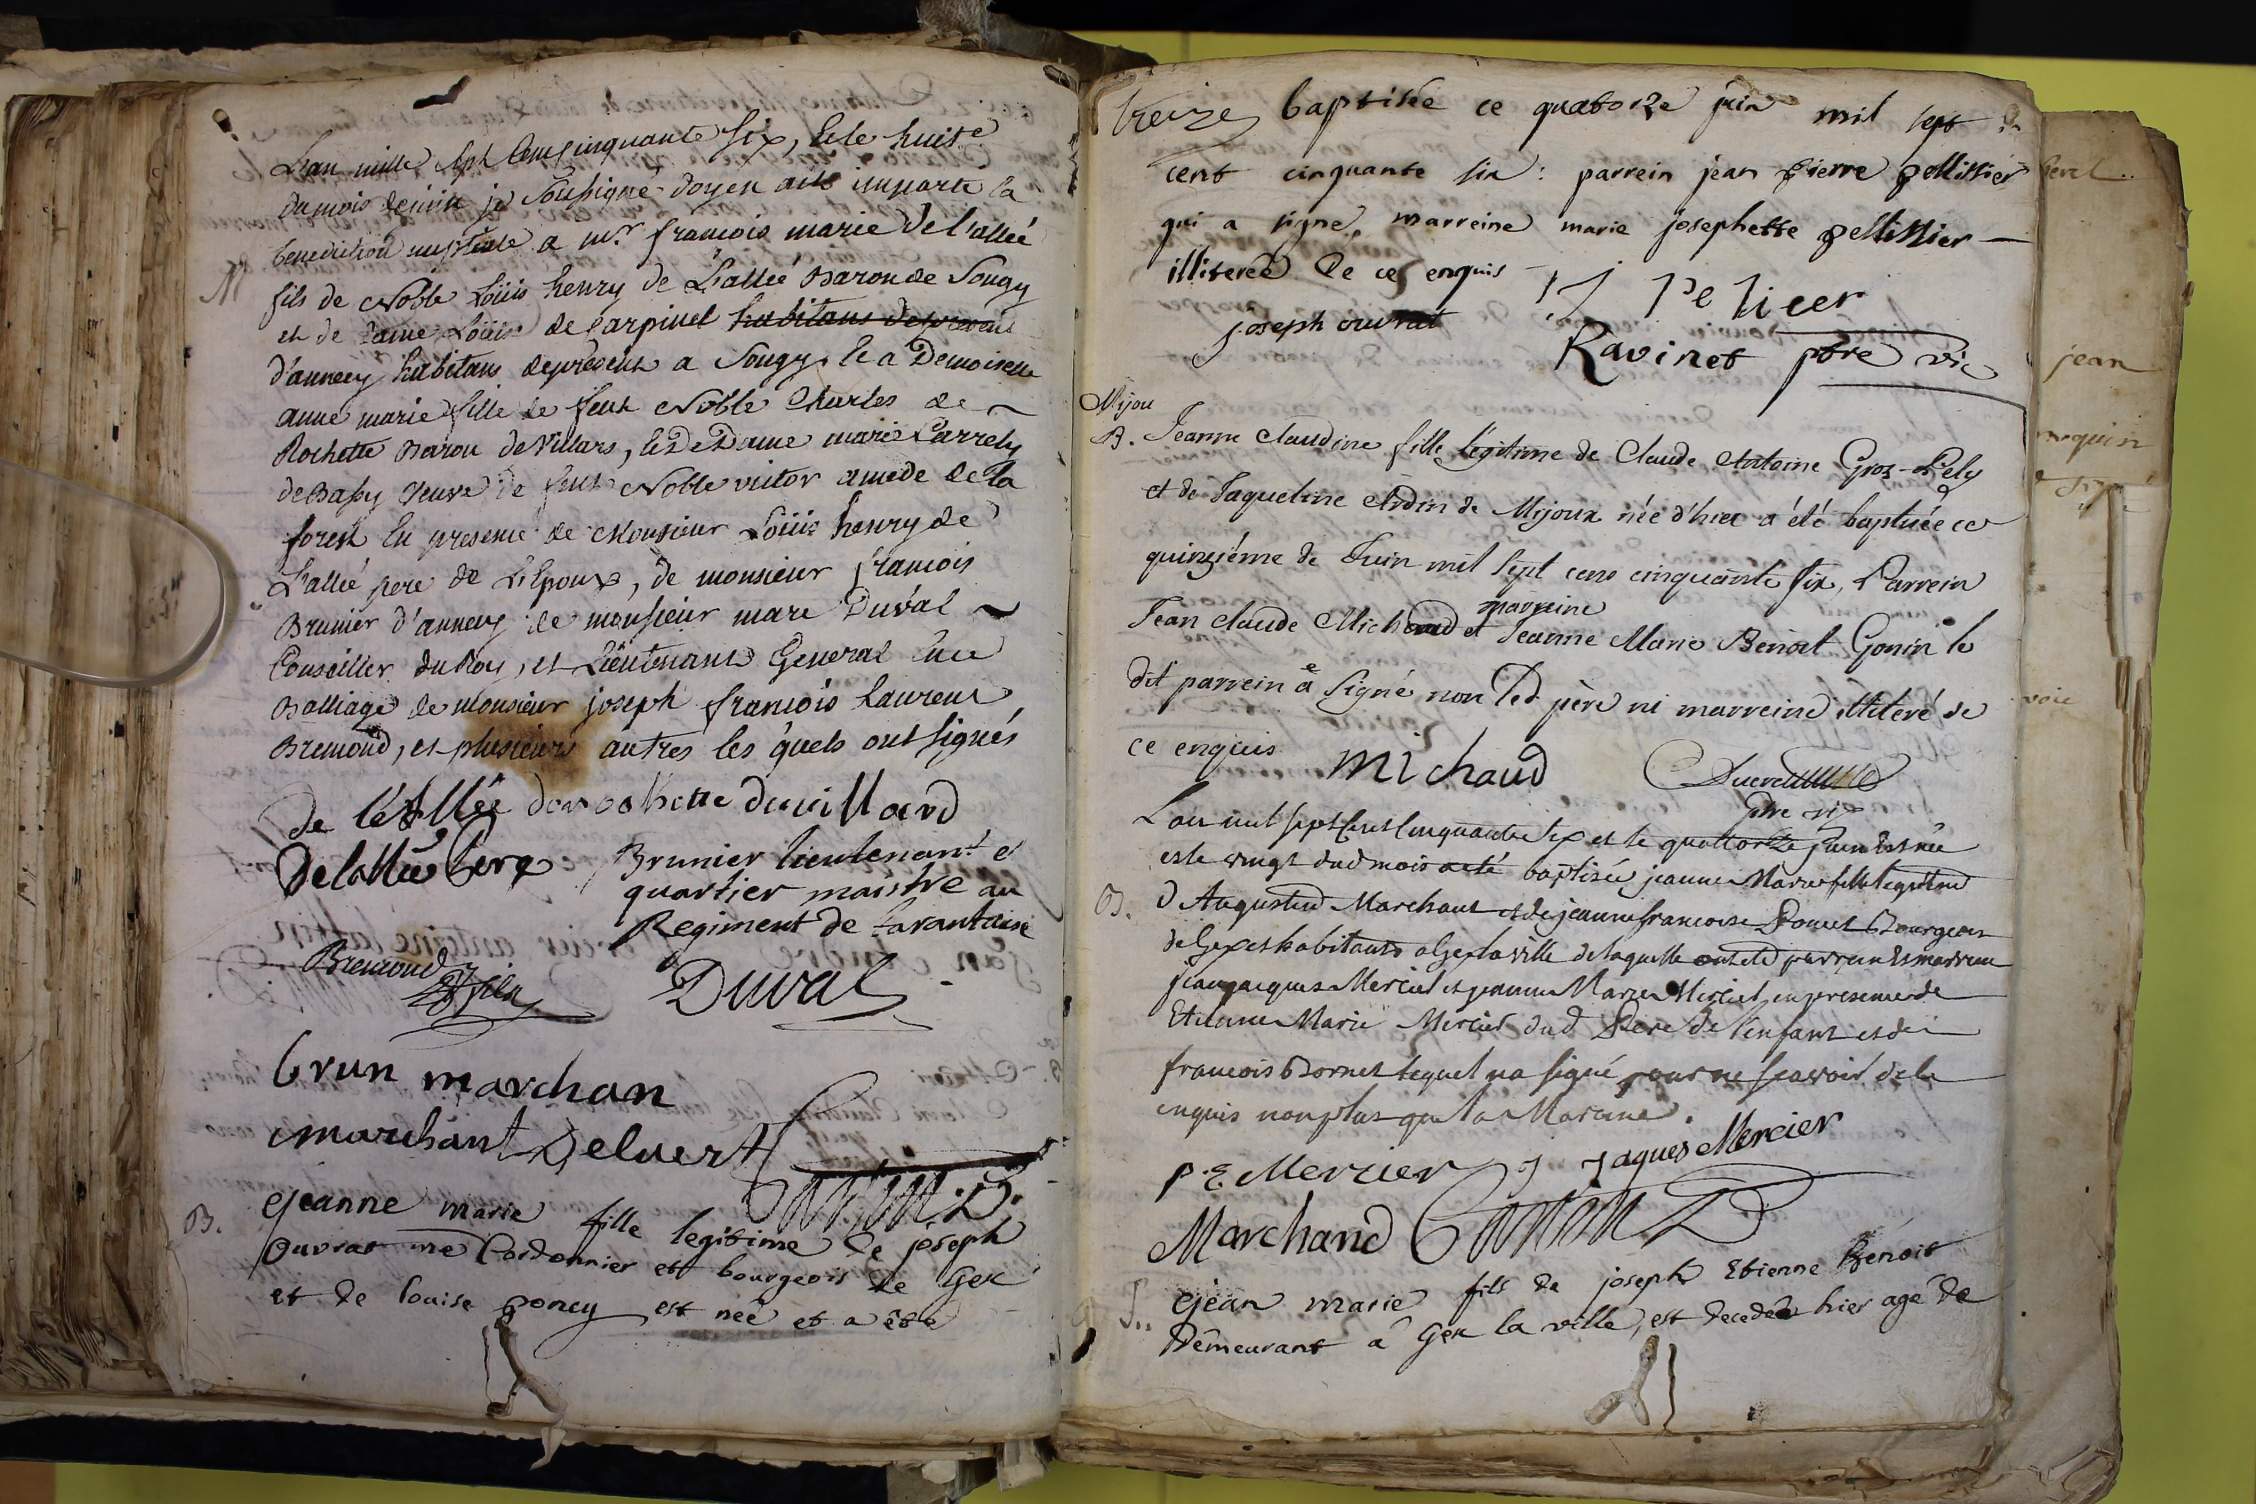 L'an mille sept cens cinquante six, et le huit.e
du mois de juin je soussigné doyen aiis imparti la
benediction nuptiale a m.r françois marie de l'allée
M
fils de Noble Loüis henry de L'allée Baron de Songy
et de dame Loüise de Carpinel habitans de present
d'annecy habitans de present a Songy, et a Demoiselle
anne marie fille de feux Noble Charles de
Rochette Baron de Villars, et de Dame marie Carrely
de Bassy veuve de feux Noble victor amede de la
forest En presence de Monsieur Loüis henry de
L'allée pere de L'Epoux, de monsieur françois
Brunier d'annecy de monsieur marc Duval
Conseiller du Roy, et Lieutenant General au
Balliage de monsieur joseph françois Laurent
Bremond, et plusieurs autres les quels ont signés
de l'Allée de rochette de villard
De lallée Pere Brunier lieutenant et
quartier maistre au
Regiment de tarantaise
Bremond
fils
Duval
brun marchan
marchant Delvert
B.
jeanne marie fille legitime de joseph
ouvrat me Cordonnier et bourgeois de Gex
et de louise poncy est neé et a été
treize baptisée ce quatorze juin mil sept
cent cinquante six : parrein jean pierre pellissier
qui a signe, marreine marie josephette pellissier
illiterée de ce enquis
joseph ouvrat
Pelicer
Ravinet ptre vic
Mijou
B. Jeanne Claudine fille légitime de Claude Antoine Gros-Pely
et de Jaqueline de Mijoux née d'hier a été baptisée ce
quinzième de Juin mil sept cens cinquante six, Parrein
marreine
Jean Claude Michaud et Jeanne Marie Benoit Gonin le
dit parrein a signé non led. père ni marreine illiteré de
ce enquis
michaud
ptre vic
L'an mil sept cent cinquante six et le quattorze juin est née
et le vingt dud mois a eté baptisée jeanne Marie fille legitime
B.
d'Augustin Marchant et de jeanne francoise Poncet Bourgeois
de Gex et habitants a Gex la ville de laquelle ont eté parrein et marreine
jean jacques Mercier et jeanne Marie Mercier en presence de
Etienne Marie Mercier dud Pere de l'enfant et de
francois Bornet lequel na signé pour ne scavoir de ce
enquis non plus que la Maraine.
P. E Mercier J Jaques Mercier
Marchand
jean marie fils de joseph Etienne Benoit
Demeurant â Gex la ville, est decedée hier agé de
jean
voie